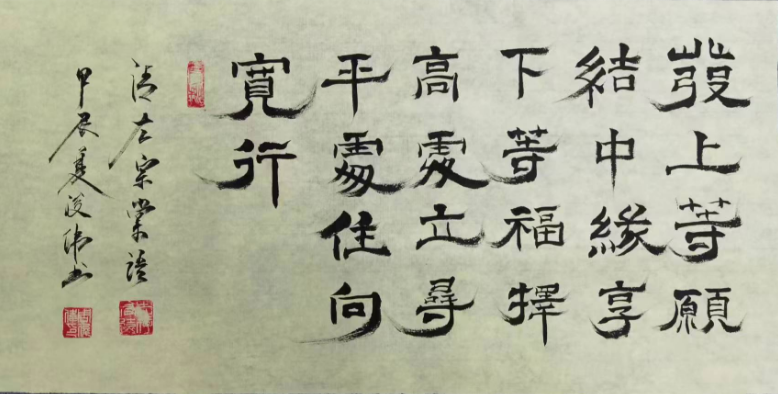 發上等願
結中緣享
下等福擇
高處立尋
平處住向
寬行
清左宗棠語
甲辰夏